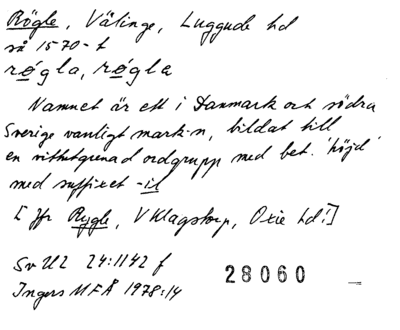 Rögle, Välinge, Luggude hd
så 1570-t
røgla, røgla
Namnet är ett i Danmark och södra
Sverige vanligt mark-n, bildat till
en vittutgrenad ordgrupp med bet. 'höjd'
med suffixet -il
[Jfr Rygle, V Klagstorp, Oxie hd!]
SvUL 24:1142 f
Ingers MFÅ 1978:14
28060